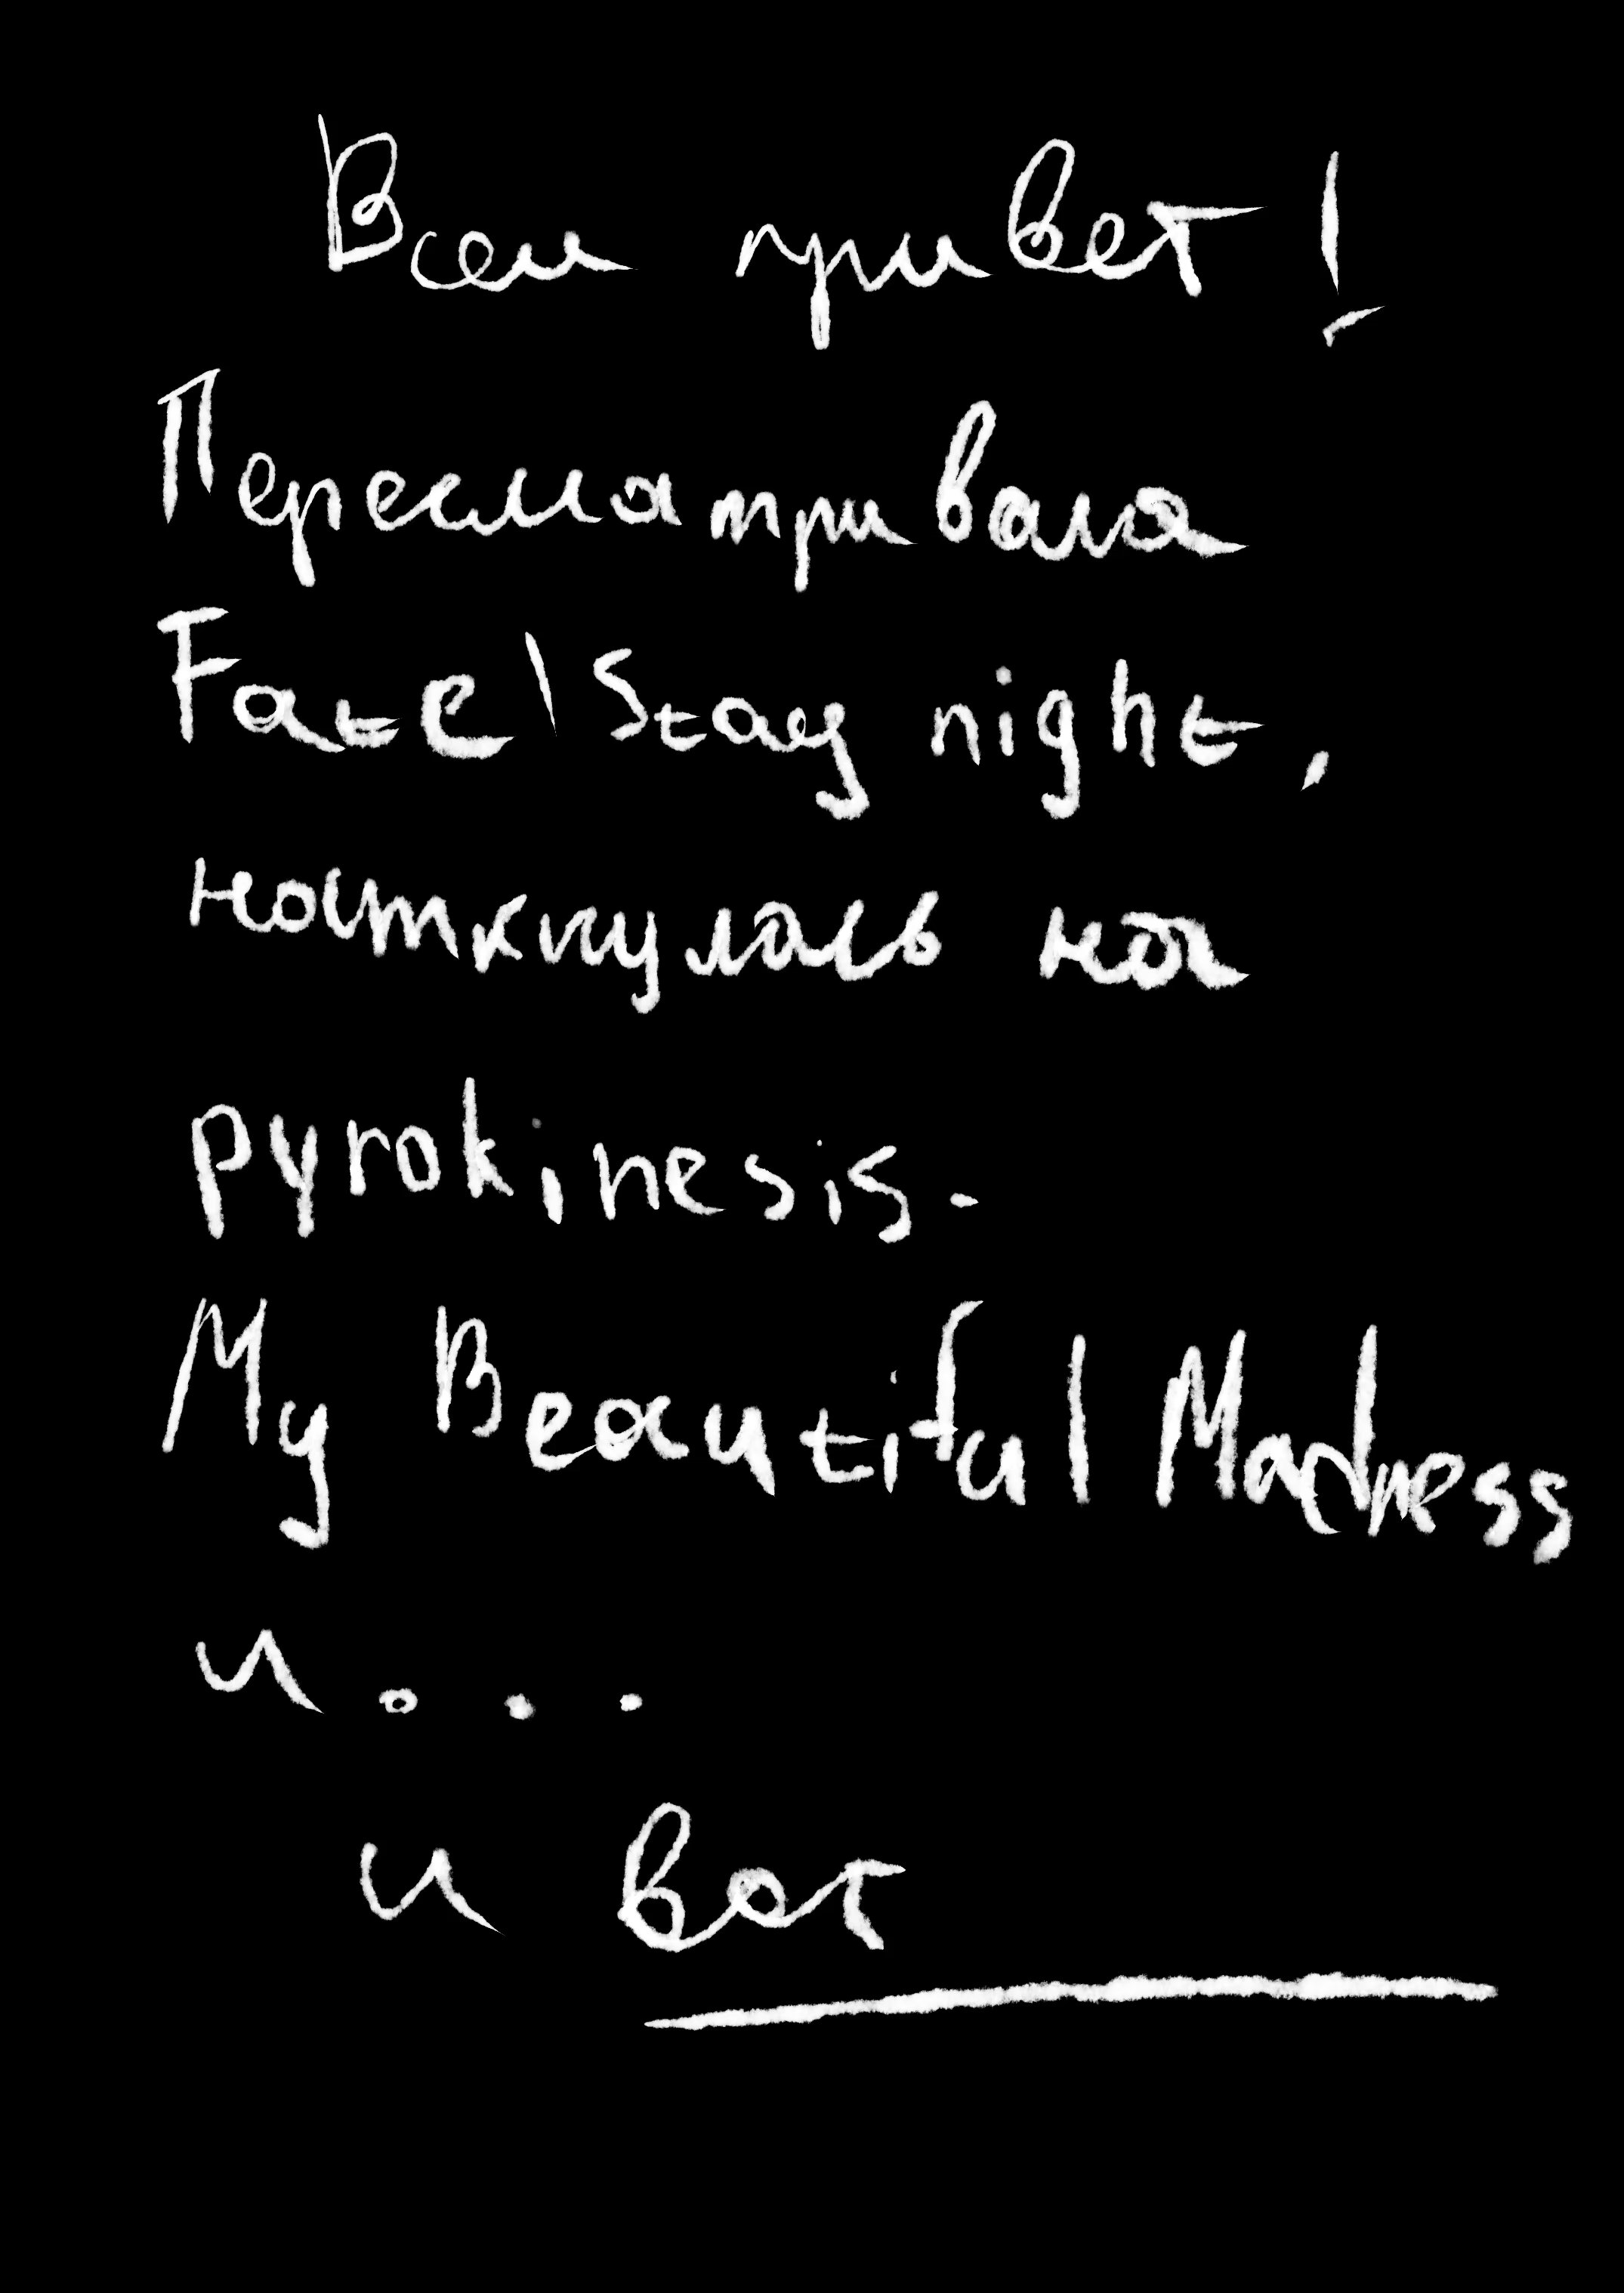 Всем привет!
Пересматривала
Fate\Stay night,
наткнулась на
pyrokinesis.
My Beautiful Madness
и...
и вот